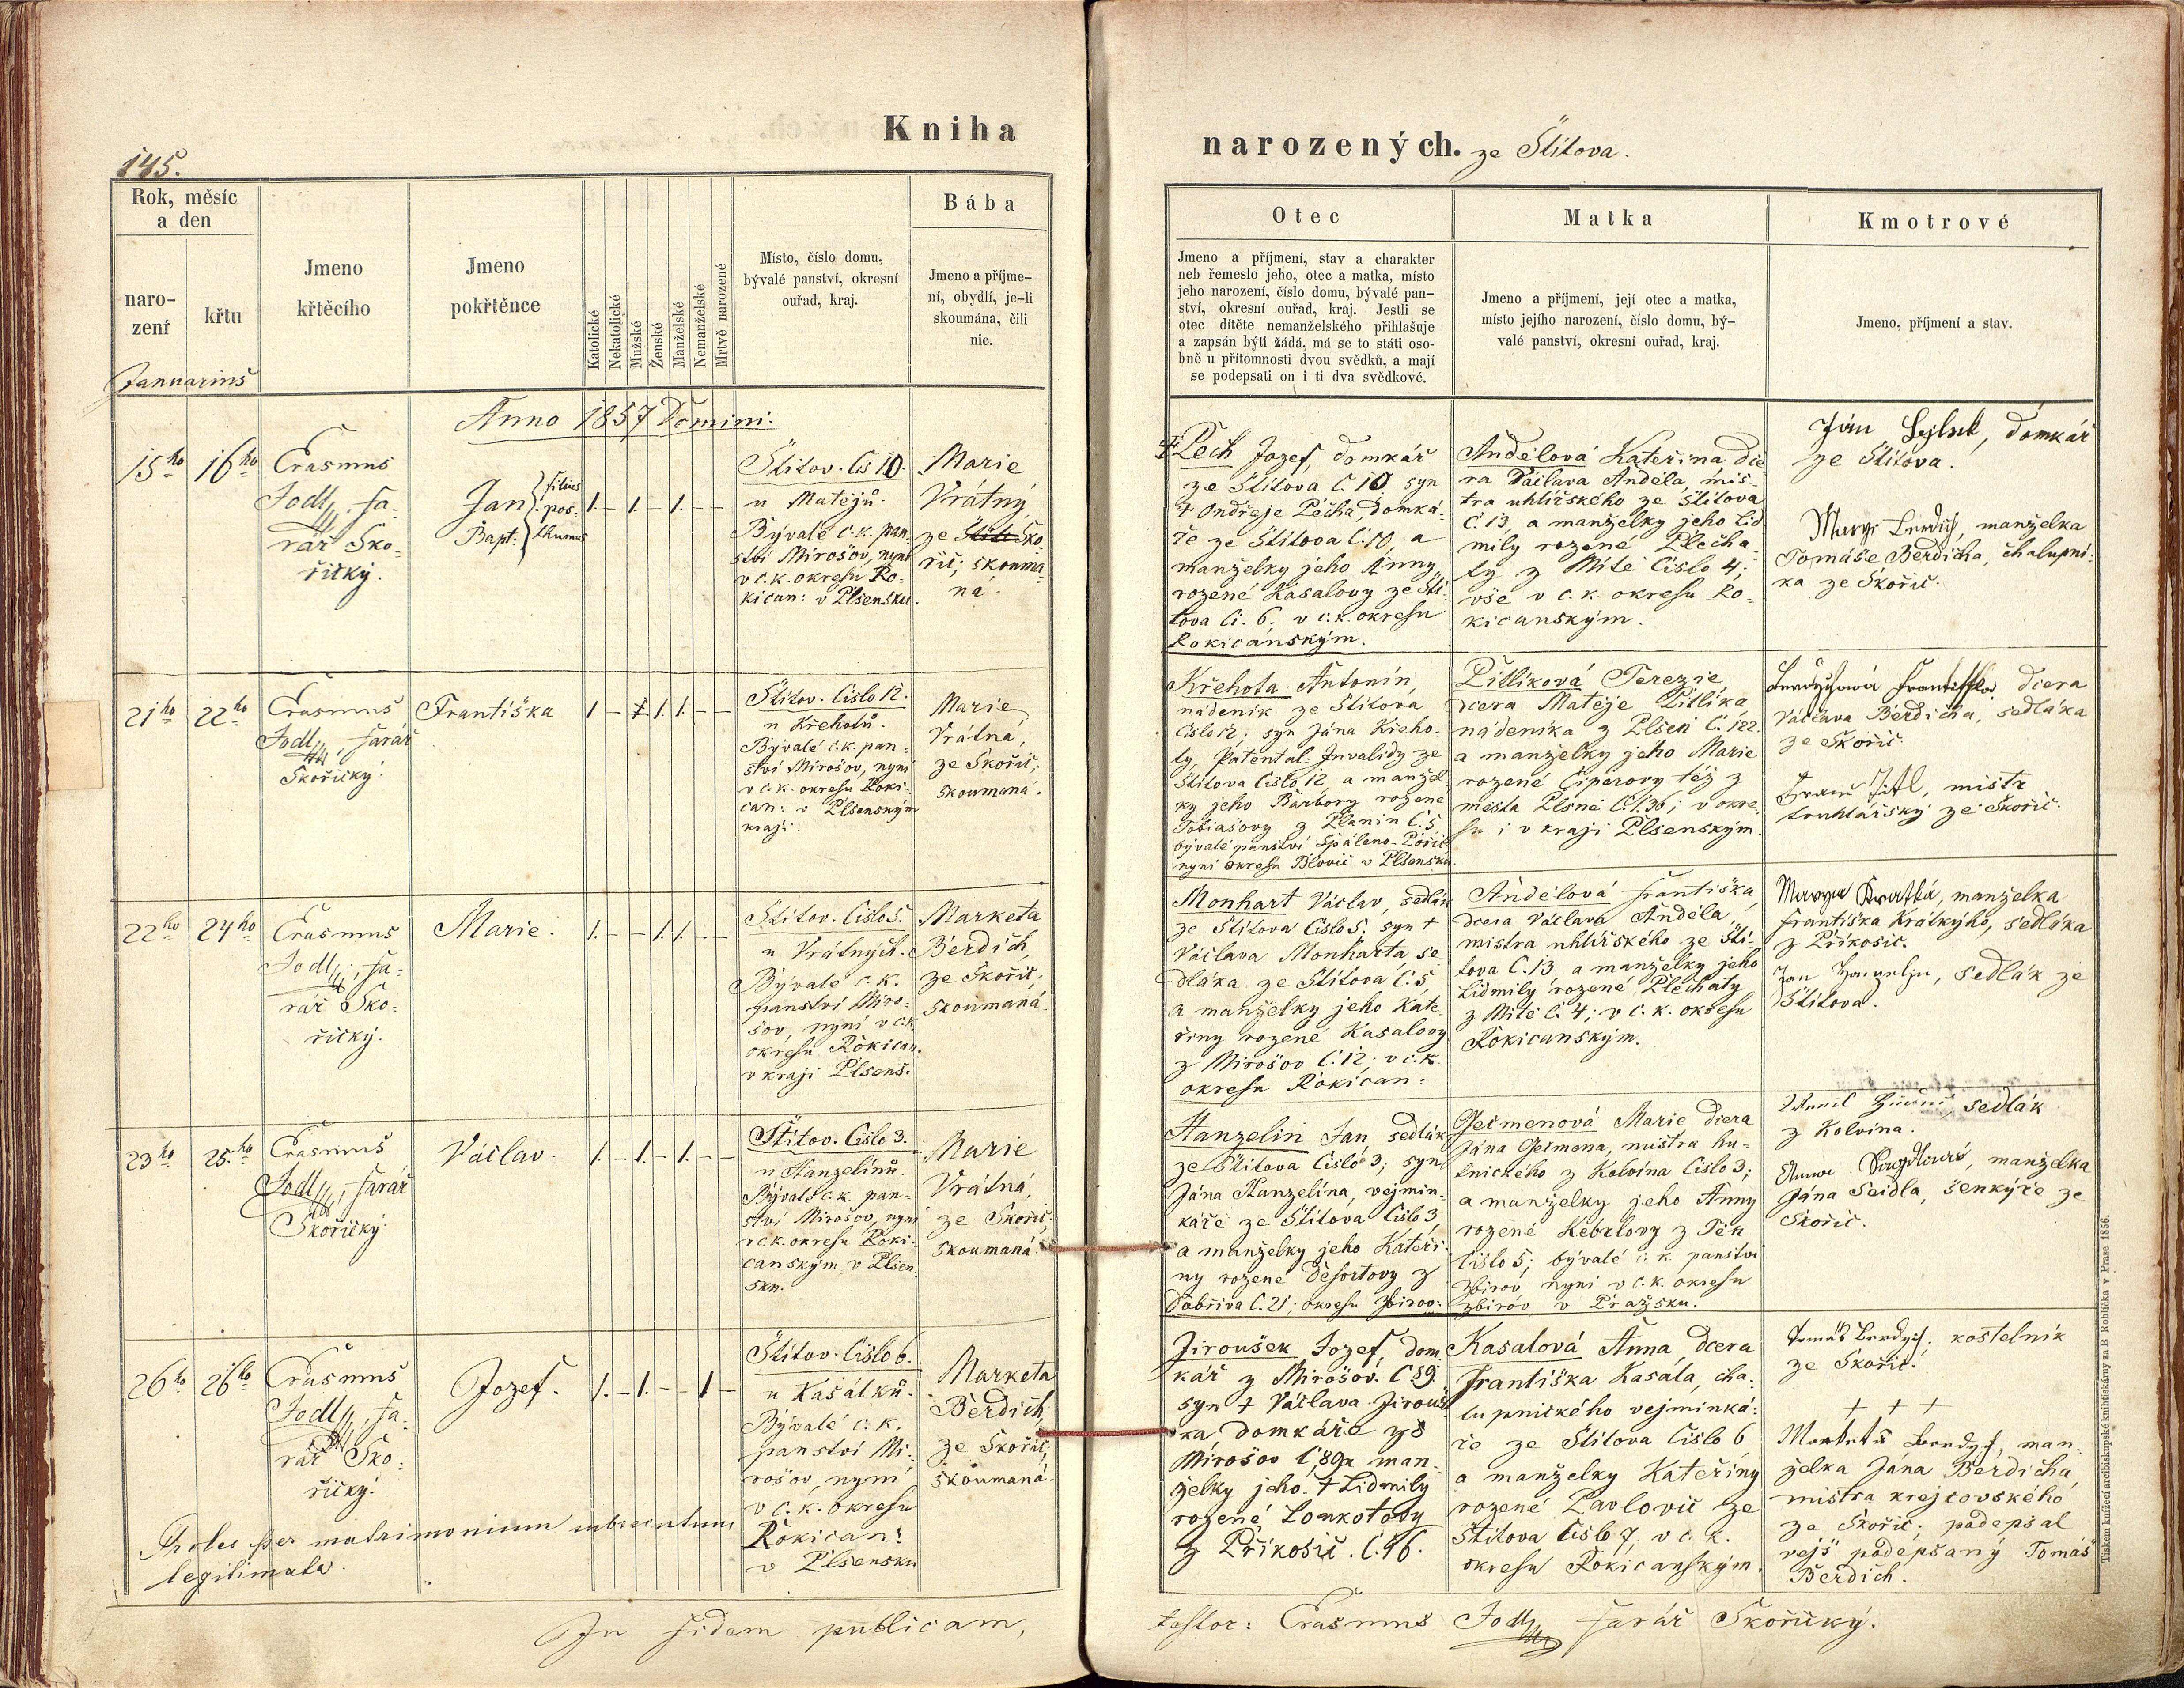 Kniha
145.
Rok, měsíc
a den
naro-
zení
křtu
Jmeno
křtěcího
Jmeno
pokřtěnce
Katolické
Nekatolické
Mužské
Ženské
Manželské
Nemanželské
Mrtvě narozené
Místo, číslo domu,
bývalé panství, okresní
ouřad, kraj.
Bába
Jmeno a příjme-
ní, obydlí, je-li
skoumána, čili
nic.
Januarius
Anno 1857 Domini.
15ho 16ho
Erasmus
Jodl, fa-
rář Sko-
řický.
Jan
Bapt.
filius
pos-
thumus
1. – 1. – 1. – –
Štítov. Čís 10.
u Matějů.
Bývalé c. k. pan-
ství Mirošov, nyní
v c. k. okresu Ro-
kican: v Plsensku.
Marie
Vrátný
ze Sko-
řic; skouma-
ná.
21ho 22ho
Erasmus
Jodl, farář
Skořický.
Františka
1 – 1. 1. – –
Štítov. Číslo 12.
u Křehotů.
Bývalé c. k. pan-
ství Mirošov, nyní
v c. k. okresu Roki-
can: v Plsenským
kraji.
Marie
Vrátná,
ze Skořic;
skoumaná.
22ho 24ho
Erasmus
Jodl, fa-
rář Sko-
řický.
Marie.
1. – – 1. 1. – –
Štítov. Číslo 5.
u Vrátných.
Bývalé c. k.
panství Miro-
šov, nyní v c. k.
okresu Rokican.
v kraji Plsens.
Marketa
Berdich,
ze Skořic;
skoumaná.
23ho 25.ho
Erasmus
Jodl, farář
Skořický.
Václav.
1. – 1. – 1. – –
Štítov. Číslo 3.
u Hanzelínů.
Bývalé c. k. pan-
ství Mirošov, nyní
v c. k. okresu Roki-
canským v Plsen-
sku.
Marie
Vrátná,
ze Skořic.
skoumaná.
26ho 26ho
Erasmus
Jodl, fa-
rář Sko-
řický.
Jozef.
1. – 1. – – 1 –
Štítov. Číslo 6.
u Kasálků.
Bývalé c. k.
panství Mi-
rošov, nyní
v c. k. okresu
Rokican:
v Plsensku
Marketa
Berdich,
ze Skořic;
skoumaná.
Proles per matrimonium subsecutum
legitimata.
In fidem publicam,
narozených. ze Štítova.
Otec
Matka
Kmotrové
Jmeno a příjmení, stav a charakter
neb řemeslo jeho, otec a matka, místo
jeho narození, číslo domu, bývalé pan-
ství, okresní ouřad, kraj. Jestli se
otec dítěte nemanželského přihlašuje
a zapsán býti žádá, má se to státi oso-
bně u přítomnosti dvou svědků, a mají
se podepsati on i ti dva svědkové.
Jmeno a příjmení, její otec a matka,
místo jejího narození, číslo domu, bý-
valé panství, okresní ouřad, kraj.
Jmeno, příjmení a stav.
‡ Pech Jozef, domkář
ze Štítova č. 10 syn
† Ondřeje Pécha, domká-
ře ze Štítova č. 10, a
manželky jeho Anny
rozené Kasalovy ze Ští-
tova čí. 6, v c. k. okresu
Rokicánským.
Andělová Kateřina, dce-
ra Václava Anděla, mis-
tra uhlířského ze Štítova
č. 13, a manželky jeho Lid
mily rozené Plecha-
ty z Mítě Číslo 4;
vše v c. k. okresu Ro-
kicanským.
Ján, domkář
ze Štítova.
manželka
Tomáše Berdicha, chalupní-
ka ze Skořic.
Křehota Antonín,
nádeník ze Štítova
číslo 12, syn Jána Křeho-
ty, Patental. Invalidy ze
Štítova číslo 12, a manžel-
ky jeho Barbory rozené
Tobiašovy z Planin č. 5
bývalé panství Spáleno-Poříč
nyní okresu Blovic v Plsensku.
Pitlíková Terezie,
dcera Matěje Pitlíka,
nádeníka z Plsen č. 122
a manželky jeho Marie
rozené Ciperovy též z
města Plsně č. 136; v okre-
su i v kraji Plsenským.
dcera
Václava Berdicha, sedláka
ze Skořic.
mistr
truhlářský ze Skořic.
Monhart Václav, sedlák
ze Štítova číslo 5; syn †
Václava Monharta, se-
dláka ze Štítova č. 5,
a manželky jeho Kate-
řiny rozené Kasalovy
z Mirošov č. 12; v c. k.
okresu Rokican:
Andělová Františka,
dcera Václava Anděla,
mistra uhlířského ze Ští-
tova č. 13, a manželky jeho
Lidmily rozené Plechaty
z Mítě č. 4; v c. k. okresu
Rokicanským.
manželka
Františka Krátkýho, sedláka
z Příkosic.
Jan, sedlák ze
Štítova.
Hanzelin Jan, sedlák
ze Štítova číslo 3; syn
Jána Hanzelína, vejmin-
káře ze Štítova číslo 3,
a manželky jeho Kateři-
ny rozené Désortovy z
Dobříva č. 21; okresu Zbirov:
Gečmenová Marie dcera
Jána Gečmena, mistra hu-
tnického z Kolvína číslo 3;
a manželky jeho Anny
rozené Kebrlovy z Těn
číslo 5; bývalé c. k. panství
Zbirov nyní v c. k. okresu
Zbirov v Pražsku.
sedlák
z Kolvína.
manželka
Jána Seidla, šenkýře ze
Skořic.
Jiroušek Jozef, dom
kář z Mirošov. č. 89.
syn † Václava Jirouš
ka domkáře z
Mirošov č, 89 a man-
želky jeho † Lidmily
rozené Loukotovy
z Příkosic. č. 16.
Kasalová Anna, dcera
Františka Kasala, cha-
lupnického vejminká-
ře ze Štítova číslo 6,
a manželky Kateřiny
rozené Pavlovic ze
Štítova číslo 7, v c. k.
okresu Rokicanským.
Tomáš Berdych, kostelník
ze Skořic.
+ + +
man-
želka Jána Berdicha,
mistra krejčovského
ze Skořic; podepsal
vejš podepsaný Tomáš
Berdich.
testor: Erasmus Jodl farář Skořický.
Tiskem knížecí arcibiskupské knihtiskárny za B Rohlíčka v Praze 1856.